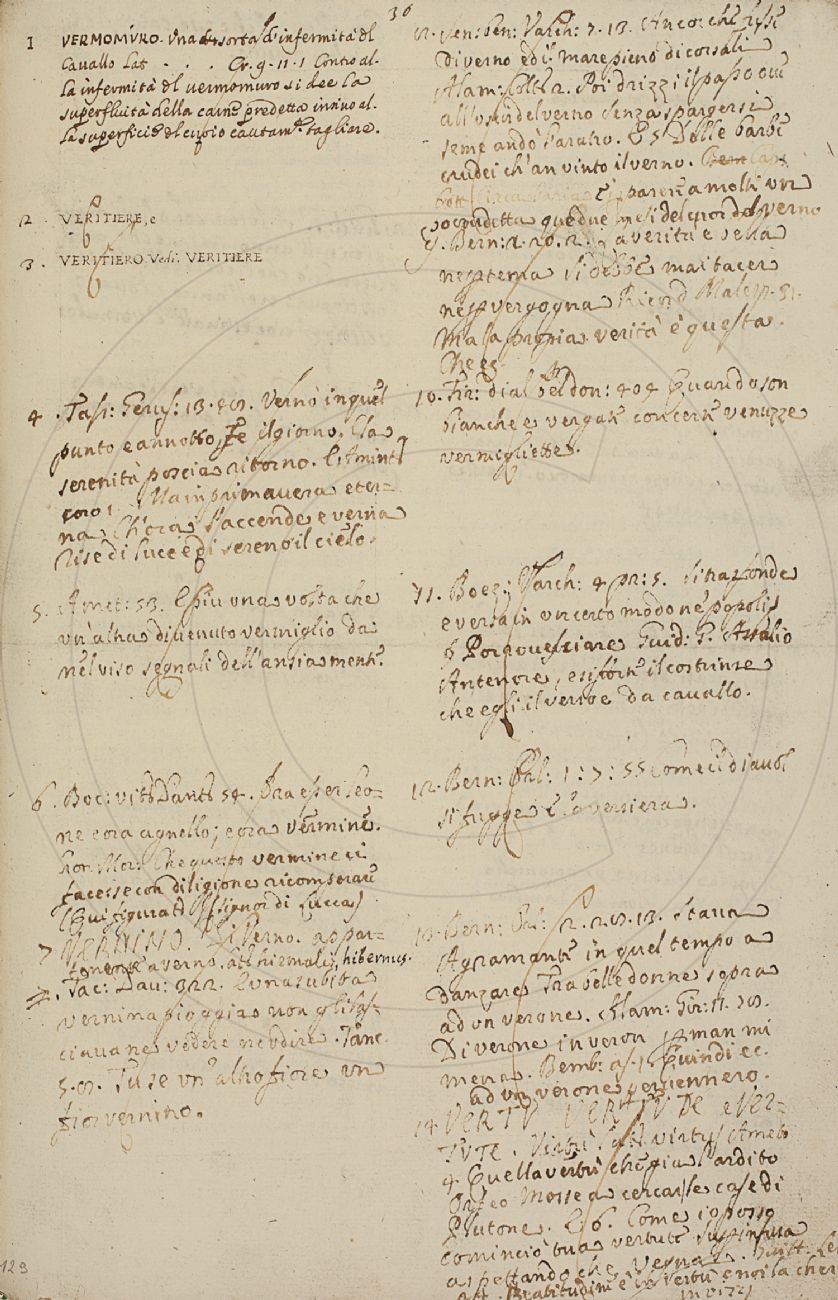 36
1 VERMOMURO. Una sorta d'infermità del
Cavallo Lat . . . Cr. 9. 11. 1 Contro al-
la infermità del vermomuro si dee la
superfluità della carne predetta infino al-
la superficie del cuoio cautam.e tagliare.
2. VERITIERE, e
3. VERITIERO. Vedi. VERITIERE
4. Tass: Gerus: 13. Vernò in quel
punto e annottò, il giorno, e la
serenità poscia ritornò. E Amint
coro 1. Ma in primavera eter-
na Ch'ora s'accende e verna
Rise di luce e di sereno il cielo.
5. Amet: 53. E più una volta che
un'altra divenuto vermiglio da:
nel viso segnali dell'ansia mente.
6. Boc: vit: Dant: 54. Fra esser leo-
ne e ora agnello; e ora vermine.
Che questo vermine ci
facesse con diligione ricomperare
(Qui figurat) Signori di Lucca)
7 VERNINO. Di Verno. appar-
tenente a verno. at. hiemalis, hibernus.
7. Tac: Dav: 322. Una subita
vernina pioggia non gli las-
ciava ne vedere ne udire. Tanc.
5. Tu se' un'altro fiore un
fior vernino.
123
Ven: Ben: Varch: 7. 13. Ancor che fusse
di verno ed il mare pieno di corsali
Alam: Colt: 2. Poi drizzi il passo ove
all'usar del verno senza spargersi
seme andò l'aratro. E 5 Delle barbe
crudei ch'an vinto il verno.
E parere a molti un
po perdetta que due mesi del cuor del verno
9. Bern: 1. 20. 2. la verità è bella
ne per tema si debbe mai tacer
ne per vergogna Ricord Malesp. 31.
Ma la propria verità è questa.
Che eg
10. Fir: dial bel don: 404 Quando son
bianche e vergate con certe venuzze
vermigliette.
11. Boez: Varch: 4 pr: 5. si nasconde
e versa in un certo modo ne popoli
Per rovesciare Guid: G. Assalio
Antenore, e si forte il costrinse
che egli il versoe da cavallo.
12. Bern: Cal: 1: 7: 55 come il diavol
si fugge e l'aversiera.
13. Bern: 2. 13. Stava
Agramante in quel tempo a
danzare Tra belle donne sopra
ad un verone. Alam: Gir: 11.
Di verone in veron per man mi
mena. Bemb: as. 1. Quindi ec.
ad un verone pervennero.
14. VERTU VERTUDE e VER-
TUTE. Virtù. lat. virtus Amet
4. Quella vertù che già l'ardito
Orfeo Mosse a cercar le case di
Plutone. E 6. Come io posso
cominciò tua vertute
aspettando che vegna.
Beatitudine è in vertù e noi la cher